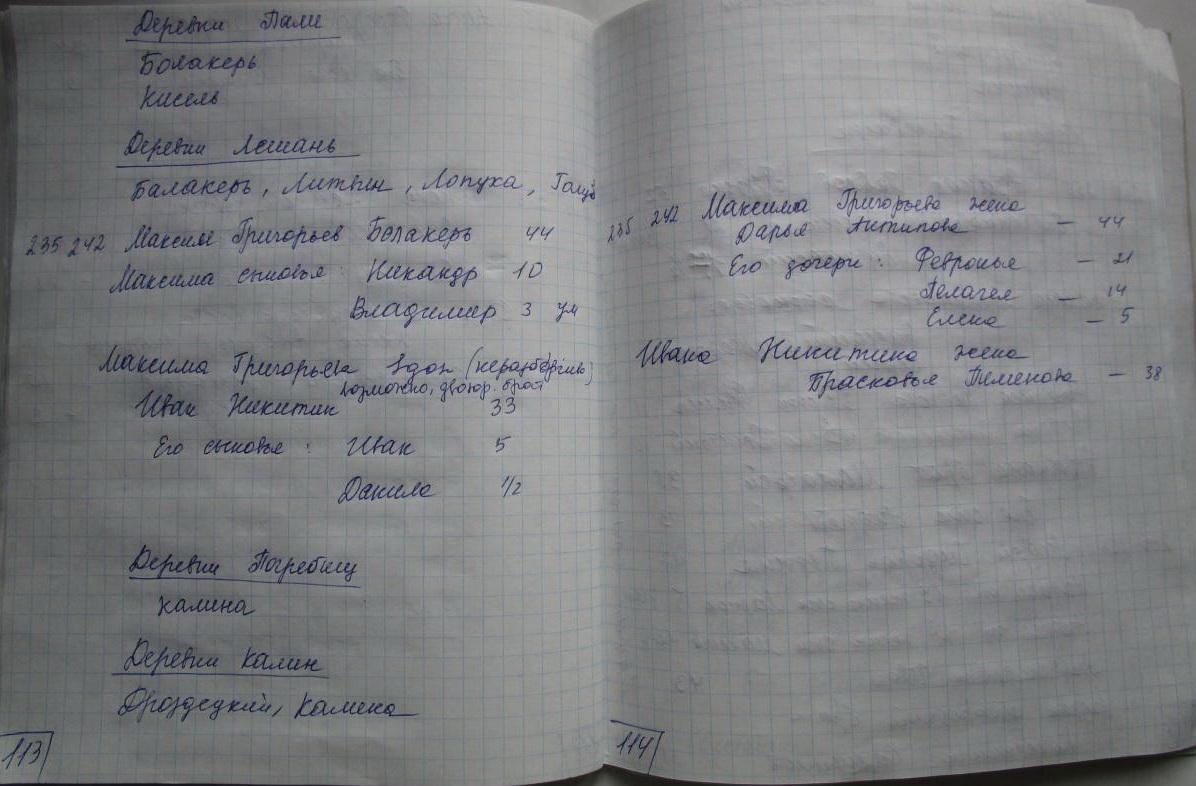 Деревни Пали
Болакерь
Кисель
Деревни Лешань
Балакерь, Литвин, Лопуха, Голуб
235 242 Максим Григорьев Болакерь 44
Максима сыновья: Никандр 10
Владимир 3 ум
Максима Григорьева (неразборчив)
возможно, двоюр. брат
Иван Никитин 33
Его сыновья: Иван 5
Данила 1/2
Деревни Погребищ
Калина
Деревни Калин
Дроздецкий, Калина
113
235 242 Максима Григорьева жена
Дарья Антипова — 44
Его дочери: Февронья — 21
Пелагея — 14
Елена — 5
Ивана Никитина жена
Прасковья Пименова — 38
114